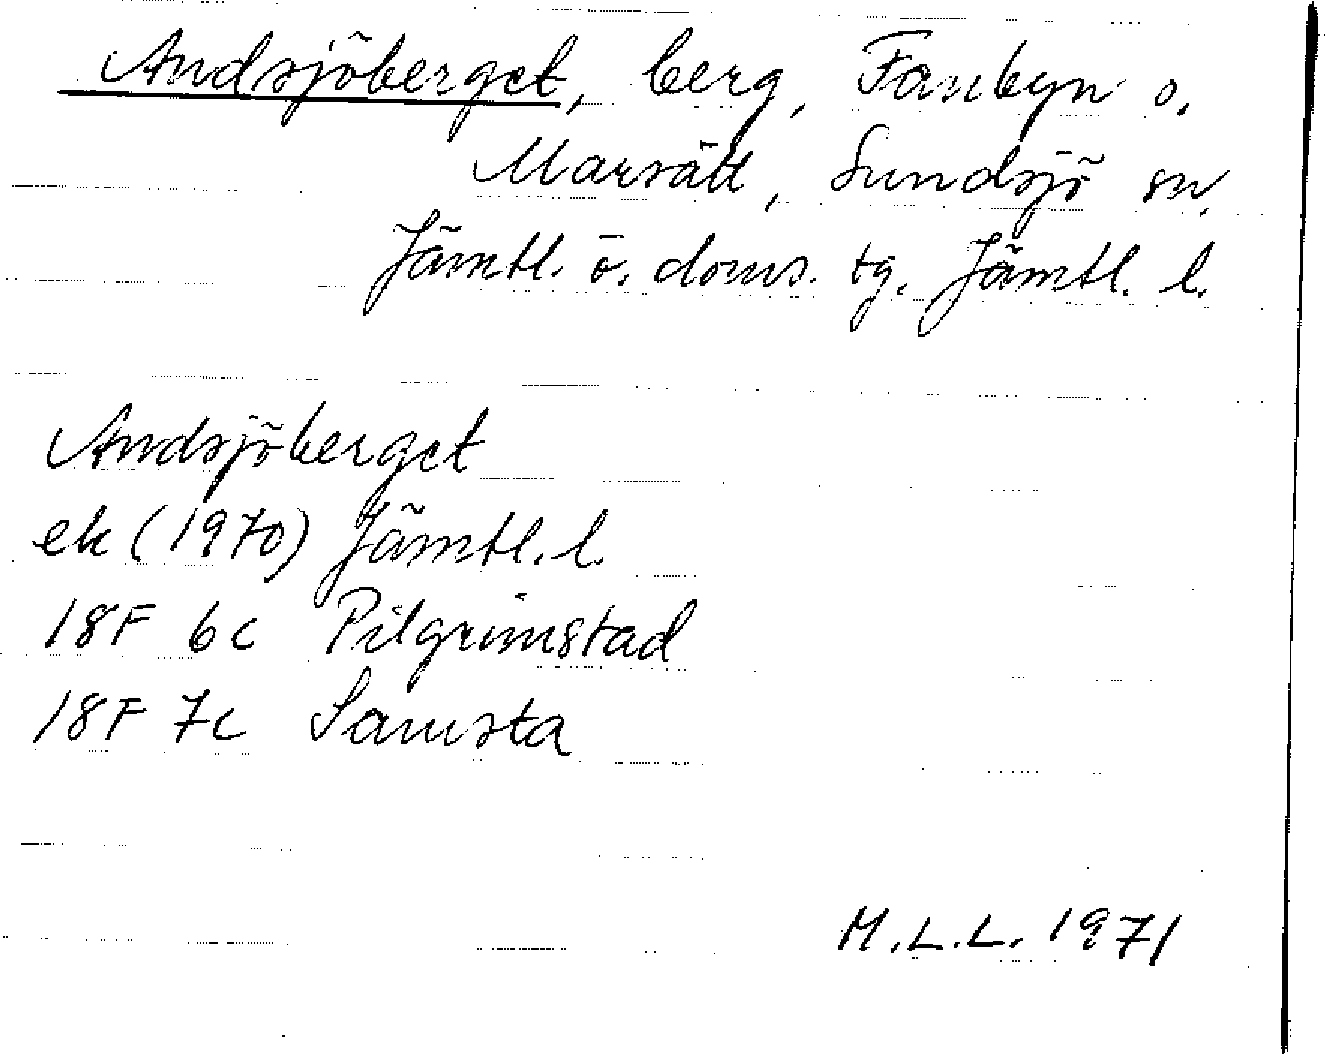 Andsjöberget, berg, Fanbyn o.
Marsätt, Sundsjö sn,
Jämtl. ö. doms. tg. Jämtl. l.
Andsjöberget
ek (1970) Jämtl. l.
18F 6c Pilgrimstad
18F 7c Samsta
M.L.L. 1971